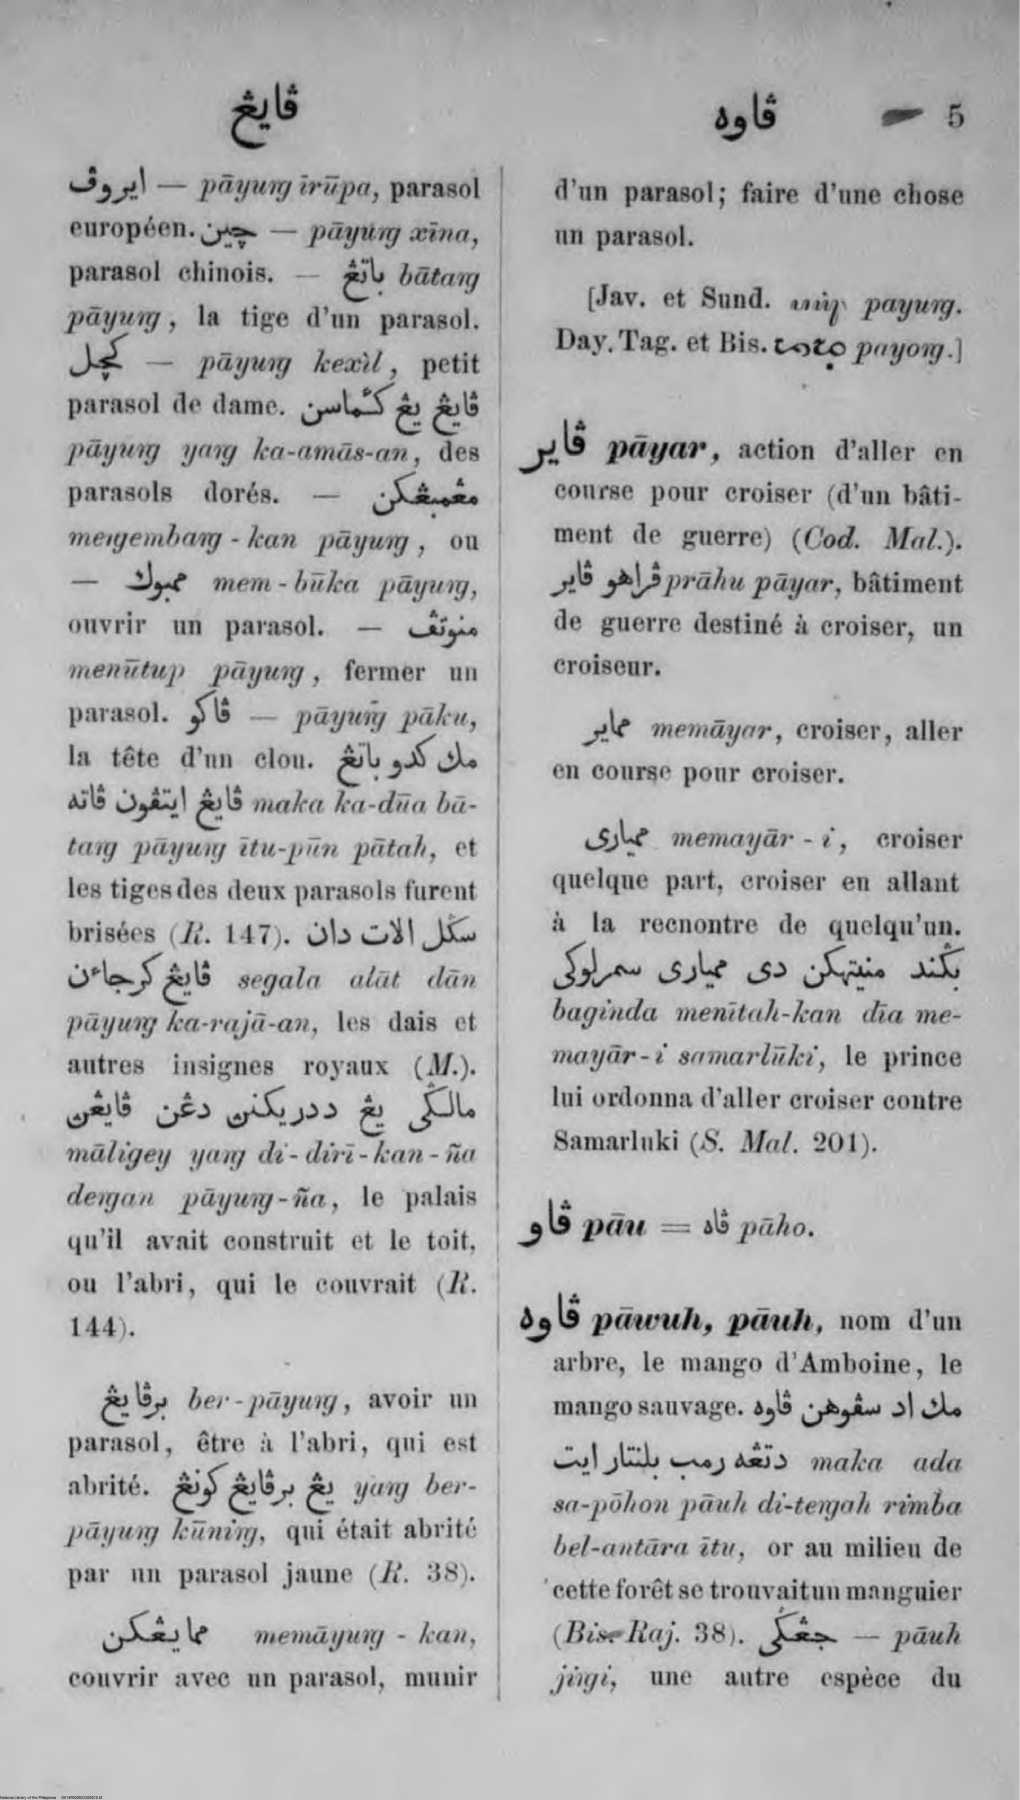 ڤايڠ
ڤاوه
5
ايروڤ — pāyuŋ īrūpa, parasol
européen. چين — pāyuŋ xīna,
parasol chinois. — باتڠ bātaŋ
pāyuŋ, la tige d'un parasol.
کچل — pāyuŋ kexìl, petit
parasol de dame. ڤايڠ يڠ کئماسن
pāyuŋ yaŋ ka-amās-an, des
parasols dorés. — مڠمبڠکن
meŋembaŋ-kan pāyuŋ, ou
— ممبوك mem-būka pāyuŋ,
ouvrir un parasol. — منوتڤ
menūtup pāyuŋ, fermer un
parasol. ڤاکو — pāyuŋ pāku,
la tête d'un clou. مك کدو باتڠ
ڤايڠ ايتڤون ڤاته maka ka-dūa bā-
taŋ pāyuŋ ītu-pūn pātah, et
les tiges des deux parasols furent
brisées (R. 147). سݢل الات دان
ڤايڠ کرجاءن segala alāt dān
pāyuŋ ka-rajā-an, les dais et
autres insignes royaux (M.).
مالݢي يڠ ددريکنن دڠن ڤايڠن
māligey yaŋ di-dirī-kan-ña
deŋan pāyuŋ-ña, le palais
qu'il avait construit et le toit,
ou l'abri, qui le couvrait (R.
144).
برڤايڠ ber-pāyuŋ, avoir un
parasol, être à l'abri, qui est
abrité. يڠ برڤايڠ کونڠ yaŋ ber-
pāyuŋ kūniŋ, qui était abrité
par un parasol jaune (R. 38).
ممايڠکن memāyuŋ-kan,
couvrir avec un parasol, munir
d'un parasol; faire d'une chose
un parasol.
[Jav. et Sund. payuŋ.
Day. Tag. et Bis. payoŋ.]
ڤاير pāyar, action d'aller en
course pour croiser (d'un bâti-
ment de guerre) (Cod. Mal.).
ڤراهو ڤاير prāhu pāyar, bâtiment
de guerre destiné à croiser, un
croiseur.
مماير memāyar, croiser, aller
en course pour croiser.
ممياري memayār-i, croiser
quelque part, croiser en allant
à la recnontre de quelqu'un.
بݢند منيتهکن دي ممياري سمرلوکي
baginda menītah-kan dīa me-
mayār-i samarlūki, le prince
lui ordonna d'aller croiser contre
Samarluki (S. Mal. 201).
ڤاو pāu = ڤاه pāho.
ڤاوه pāwuh, pāuh, nom d'un
arbre, le mango d'Amboine, le
mango sauvage. مك اد سڤوهن ڤاوه
دتڠه رمب بلنتار ايت maka ada
sa-pōhon pāuh di-teŋah rimba
bel-antāra ītu, or au milieu de
cette forêt se trouvait un manguier
(Bis. Raj. 38). جڠݢي — pāuh
jiŋgi, une autre espèce du